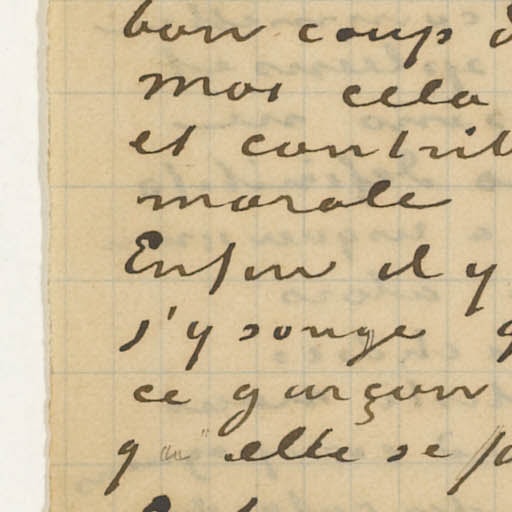 bon coup d
moi cela
et contrib
morale
Enfin il y
j'y songe q
ce garçon
qu'elle se pa